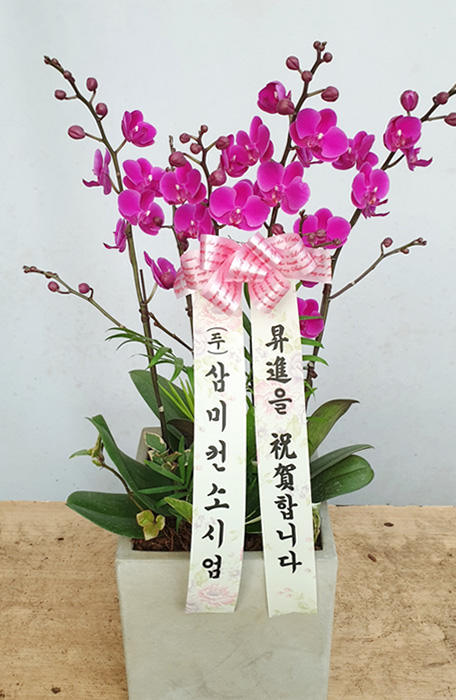 昇進을 祝賀합니다
(주)삼미컨소시엄